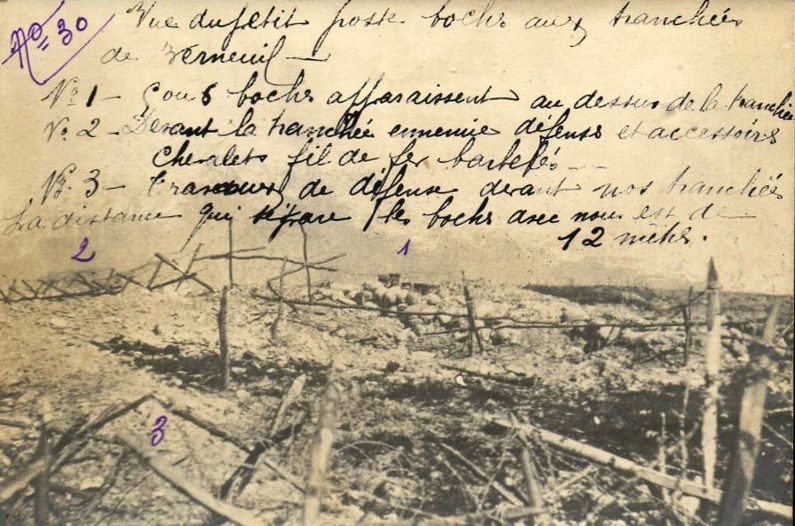 No = 30
Vue du petit poste boche aux tranchées
de Verneuil —
No 1 — 5 ou 6 boches apparaissent au dessus de la tranchée
No 2 — Devant la tranchée ennemie défense et accessoirs
Chevalets fil de fer barbelés —
No 3 — de défense devant nos tranchées
La distance qui sépare les boche avec nous est de
12 mètrs.
2 1
3